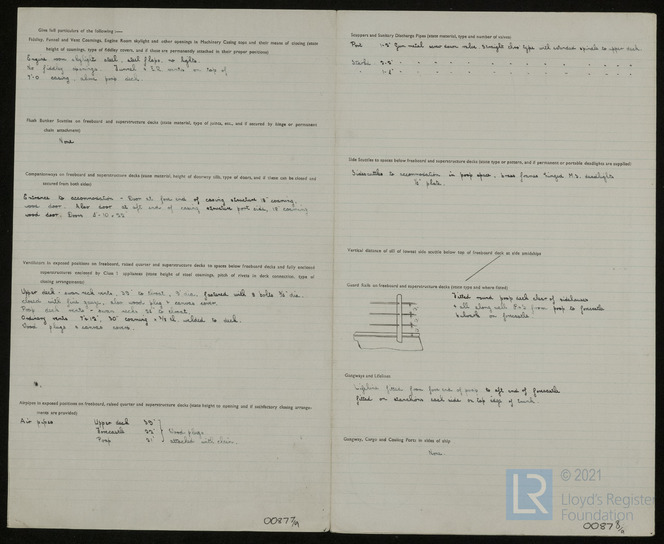 Give full particulars of the following :—
Fiddley, Funnel and Vent Coamings, Engine Room skylights and other openings in Machinery Casing tops and their means of closing (state
height of coamings, type of fiddley covers, and if these are permanently attached in their proper positions)
Engine room skylights steel, steel flaps, no lights.
No fiddley openings. Funnel + E.R. vents on top of
7'-0 casing, above poop deck.
Flush Bunker Scuttles on freeboard and superstructure decks (state material, type of joints, etc., and if secured by hinge or permanent
chain attachment)
None
Companionways on freeboard and superstructure decks (state material, height of doorway sills, type of doors, and if these can be closed and
secured from both sides)
Entrance to accommodation - Door at fore end of casing structure 18" coaming.
wood door. Also door at aft end of casing structure port side, 18" coaming
wood door.
Ventilators in exposed positions on freeboard, raised quarter and superstructure decks to spaces below freeboard decks and fully enclosed
superstructures enclosed by Class 1 appliances (state height of steel coamings, pitch of rivets in deck connection, type of
closing arrangements)
Upper deck - swan neck vents,
wood plug + canvas cover.
Poop deck vents - swan necks
Ordinary vents 30" coaming welded to deck.
Wood plugs + canvas covers.
Airpipes in exposed positions on freeboard, raised quarter and superstructure decks (state height to opening and if satisfactory closing arrange-
ments are provided)
Air pipes Upper deck
Forecastle Wood plugs
Poop attached with chain.
00877/9
Scuppers and Sanitary Discharge Pipes (state material, type and number of valves)
Port gun metal screw down valve straight thro type with extended spindle to upper deck.
Starbd.
Side Scuttles to spaces below freeboard and superstructure decks (state type or pattern, and if permanent or portable deadlights are supplied)
Sidescuttles to accommodation in poop space, brass frames hinged M.S. deadlights
plate.
Vertical distance of sill of lowest side scuttle below top of freeboard deck at side amidships
Guard Rails on freeboard and superstructure decks (state type and where fitted)
Fitted round poop deck clear of
+ all along with P+S from poop to forecastle
Bulwark on forecastle.
Gangways and Lifelines
Lifeline fitted from fore end of poop to aft end of forecastle
fitted on stanchions each side on top edge of trunk.
Gangway, Cargo and Coaling Ports in sides of ship
None.
LR © 2021
Lloyd's Register
Foundation
00878/9